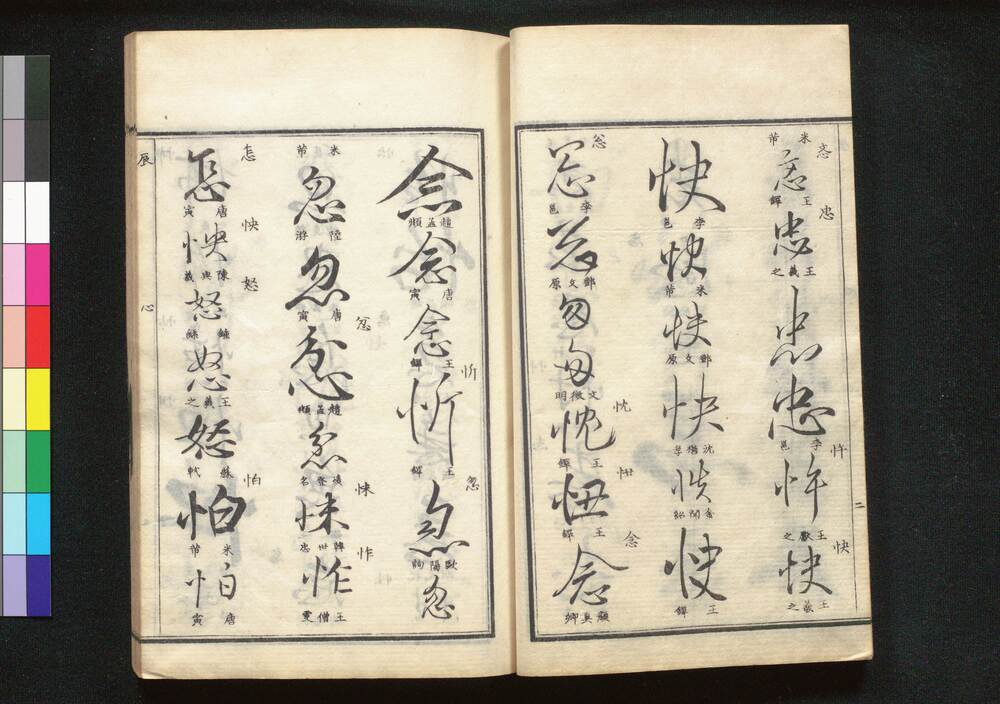 忞 忞 王鐸
米芾
忠 忠 王羲之
忠
忠 李邕
忤 忤 王獻之
快 快 王羲之
二
快 李邕
快 米芾
快 鄧文原
快 沈
快
快 王鐸
忩 忩 李邕
忩 鄧文原
匆
匆 文徵明
忱 忱 王鐸
忸 忸 王鐸
念 念 顏真卿
念 趙孟頫
念 唐寅
念 王鐸
忻 忻 王鐸
忽 忽 歐陽詢
忽 米芾
忽 陸游
忽 唐寅
忿 忿 趙孟頫
忿
怽 怽
怍 怍 王僧虔
怎 怎 唐寅
怏 怏 陳與義
怒 怒 鍾繇
怒 王羲之
怒 蘇軾
怕 怕 米芾
怕 唐寅
辰
心